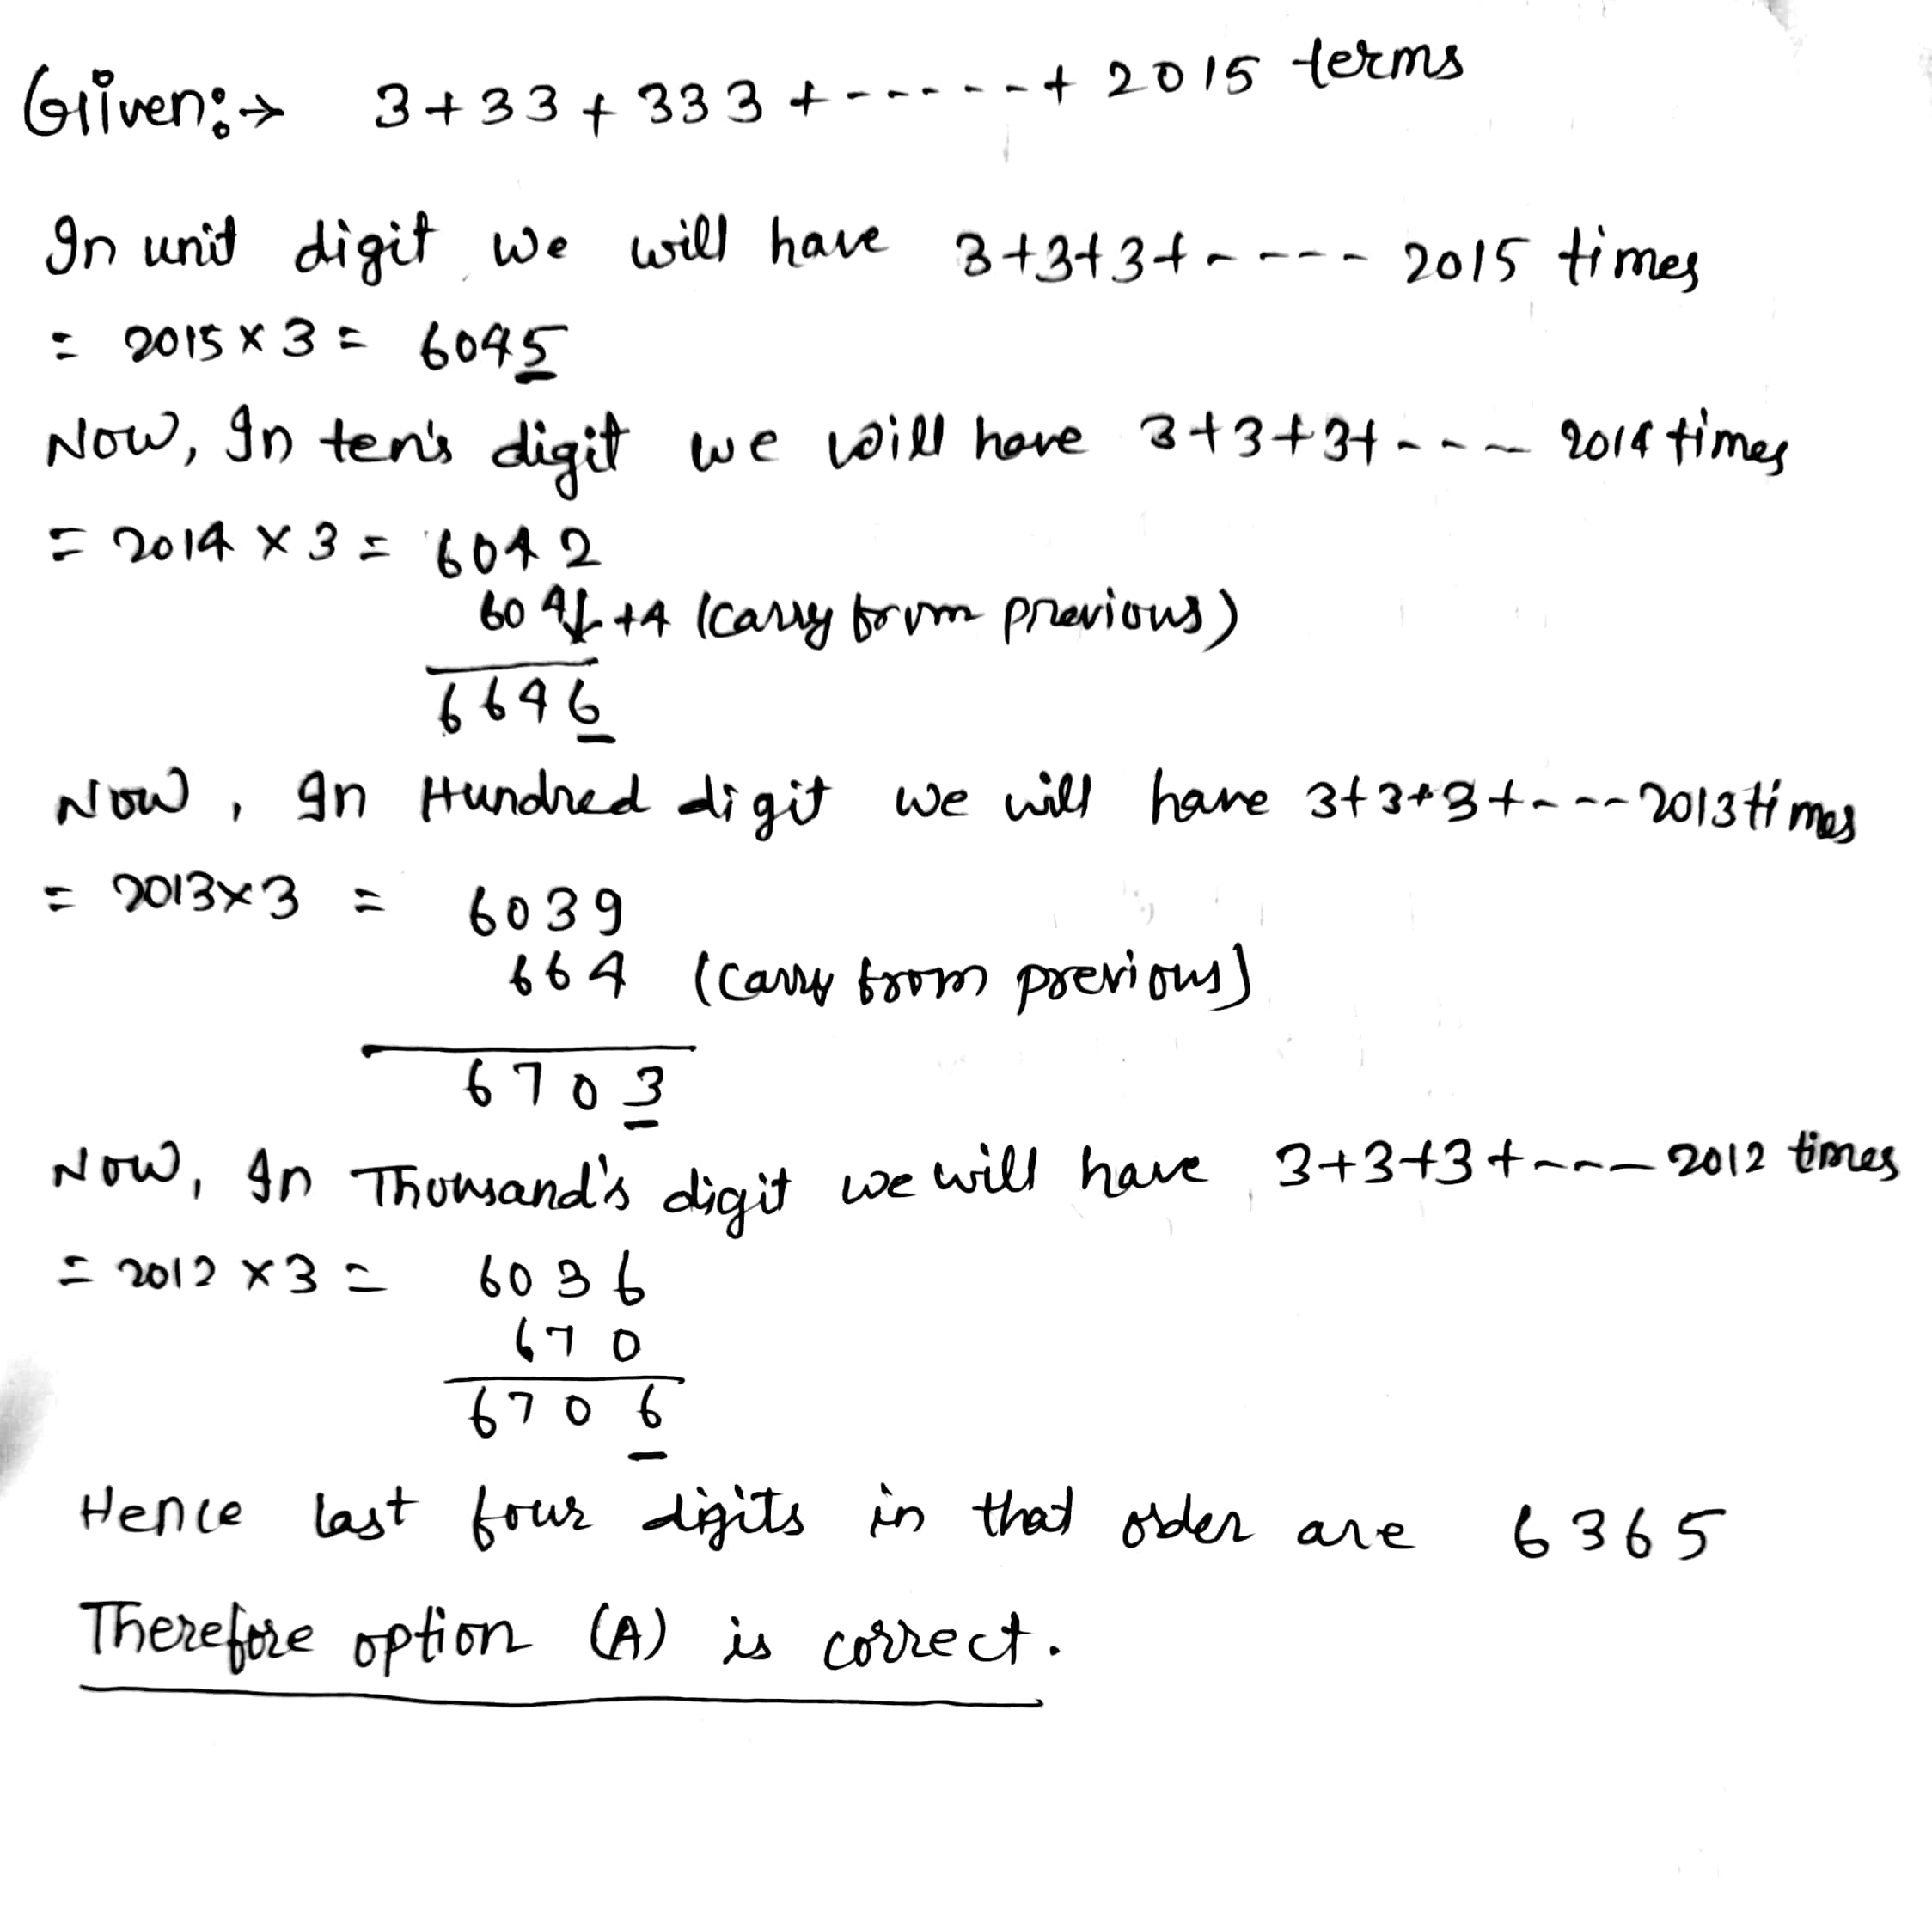 Given:→ 3+33+333+------+ 2015 terms
In unit digit we will have 3+3+3+---- 2015 times
= 2015×3= 6045
Now, In ten's digit we will have 3+3+3+---- 2014 times
= 2014 × 3 = 6042
604 +4 (carry from previous)
6646
Now, In Hundred digit we will have 3+3+3+---2013 times
= 2013×3 = 6039
664 (carry from previous)
6703
Now, In Thousand's digit we will have 3+3+3+---- 2012 times
= 2012 ×3 = 6036
670
6706
Hence last four digits in that order are 6365
Therefore option (A) is correct.